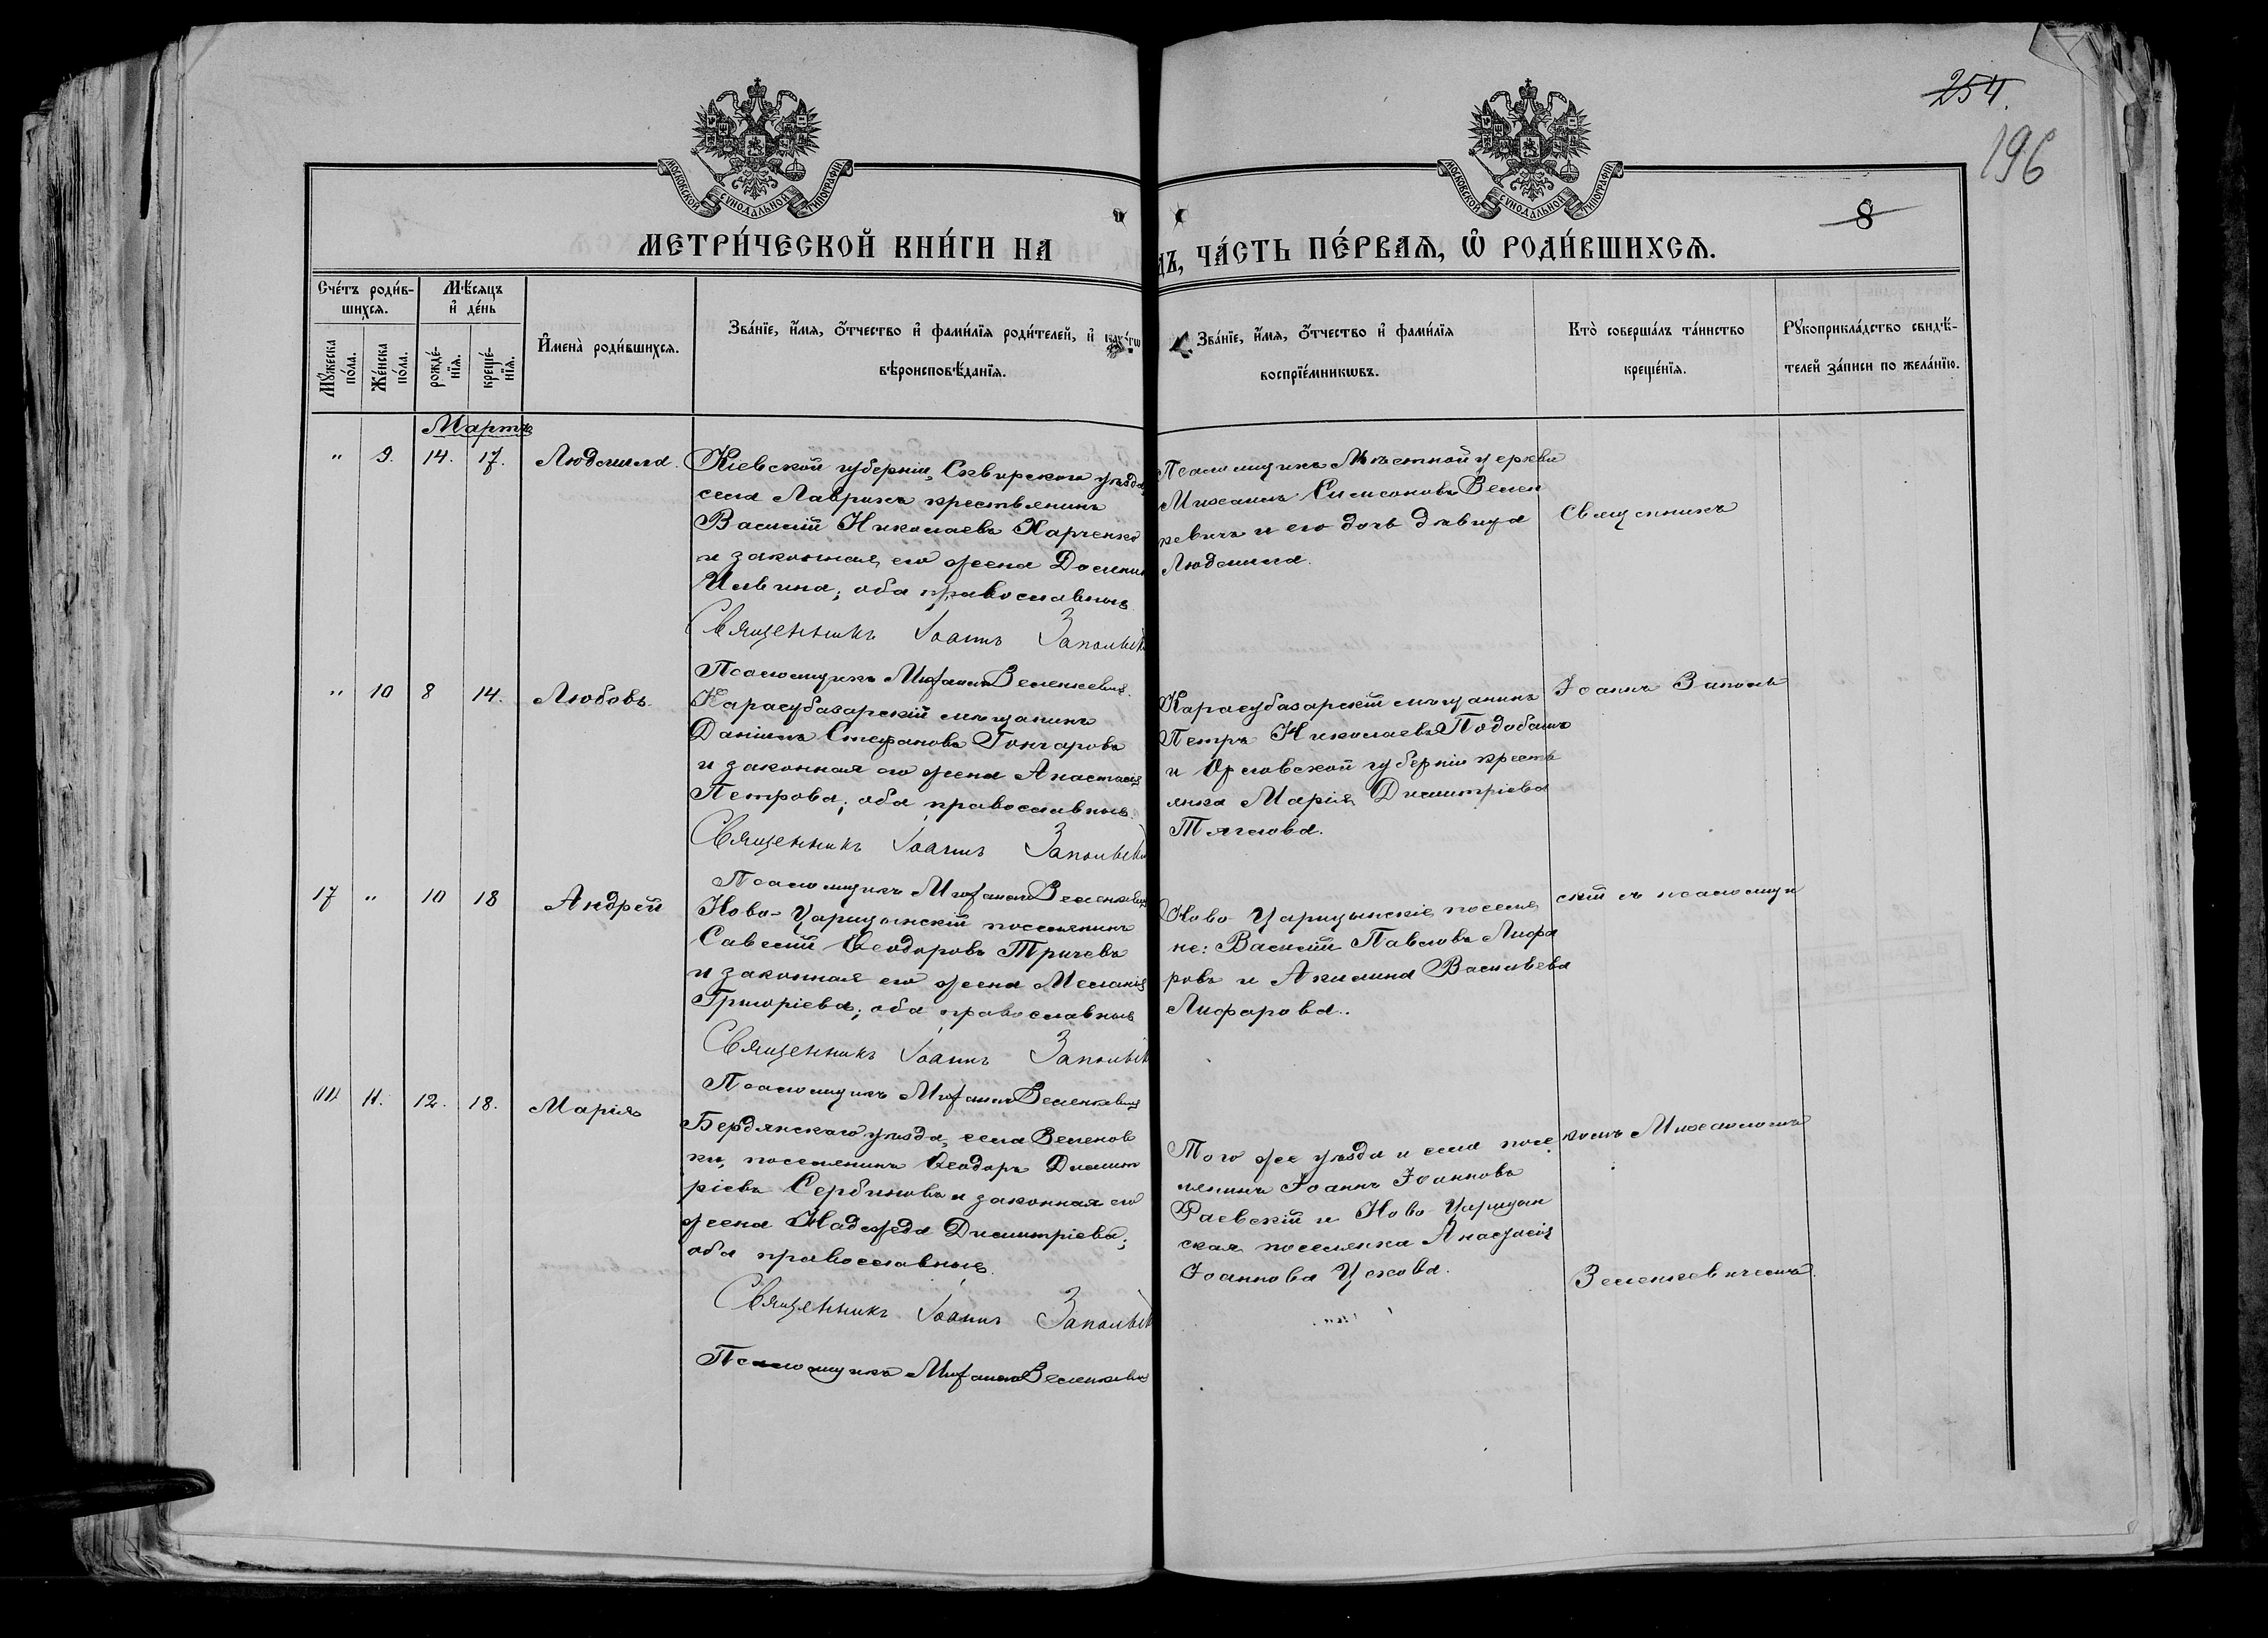 254.
196
8
МОСКОВСКОЙ СУНОДАЛЬНОЙ ТИПОГРАФІИ
МОСКОВСКОЙ СУНОДАЛЬНОЙ ТИПОГРАФІИ
МЕТРИ́ЧЕСКОЙ КНИ́ГИ НА
ДЪ, ЧА́СТЬ ПЕ́РВАЯ, Ѽ РОДИ́ВШИХСЯ.
Сче́тъ роди́в-
шихся.
Мꙋжеска по́ла.
Же́нска по́ла.
Мѣ́сяцъ
и҆ де́нь
рожде́-
нїя.
креще́-
нїя.
И҆мена̀ роди́вшихся.
Зва́нїе, и҆́мя, ѻ҆́тчество и҆ фами́лїя роди́телей, и҆
вѣроисповѣ́данїя.
Зва́нїе, и҆́мя, ѻ҆́тчество и҆ фами́лїя
воспрїе́мникѡвъ.
Кто̀ соверша́лъ та́инство
креще́нїя.
Рꙋкоприкла́дство свидѣ́-
телей за́писи по жела́нїю.
Мартъ
" 9. 14. 17. Людмила.
Кіевской губерніи, Сквирскаго уѣзда,
села Лавриковъ крестьянинъ
Василій Николаевъ Харченко
и законная его жена Домникія
Ильина; оба православные
Священникъ Іоаннъ Запольскій
Псаломщикъ Михаилъ Зеленкевичъ
Псаломщикъ Мѣстной церкви
Михаилъ Симеоновъ Зелен
кевичъ и его дочь дѣвица
Людмила.
Священникъ
" 10 8 14. Любовь.
Карасубазарскій мѣщанинъ
Даніилъ Стефановъ Гончаровъ
и законная его жена Анастасія
Петрова; оба православные.
Священникъ Іоаннъ Запольскій
Псаломщикъ Михаилъ Зеленкевичъ
Карасубазарскій мѣщанинъ
Петръ Николаевъ Подобашъ
и Орловской губерніи кресть
янка Марія Димитріева
Тяглова.
Іоаннъ Заполь
17 " 10 18 Андрей
Ново-Царицынскій поселянинъ
Савелій Ѳеодоровъ Тричевъ
и законная его жена Меланія
Григоріева; оба православные
Священникъ Іоаннъ Запольскій
Псаломщикъ Михаилъ Зеленкевичъ
Ново-Царицынскіе поселя
не: Василій Павловъ Лифа
ровъ и Акилина Васильева
Лифарова.
скій съ псаломщи
11. 12. 18. Марія
Бердянскаго уѣзда, села Зеленов
ки, поселянинъ Ѳеодоръ Димит
ріевъ Сербиновъ и законная его
жена Надежда Димитріева;
оба православные.
Священникъ Іоаннъ Запольскій
Псаломщикъ Михаилъ Зеленкевичъ
Того же уѣзда и села посе
лянинъ Іоаннъ Іоанновъ
Раевскій и Ново-Царицын
ская поселянка Анастасія
Іоаннова Ужова.
комъ Михаиломъ
Зеленкевичемъ.